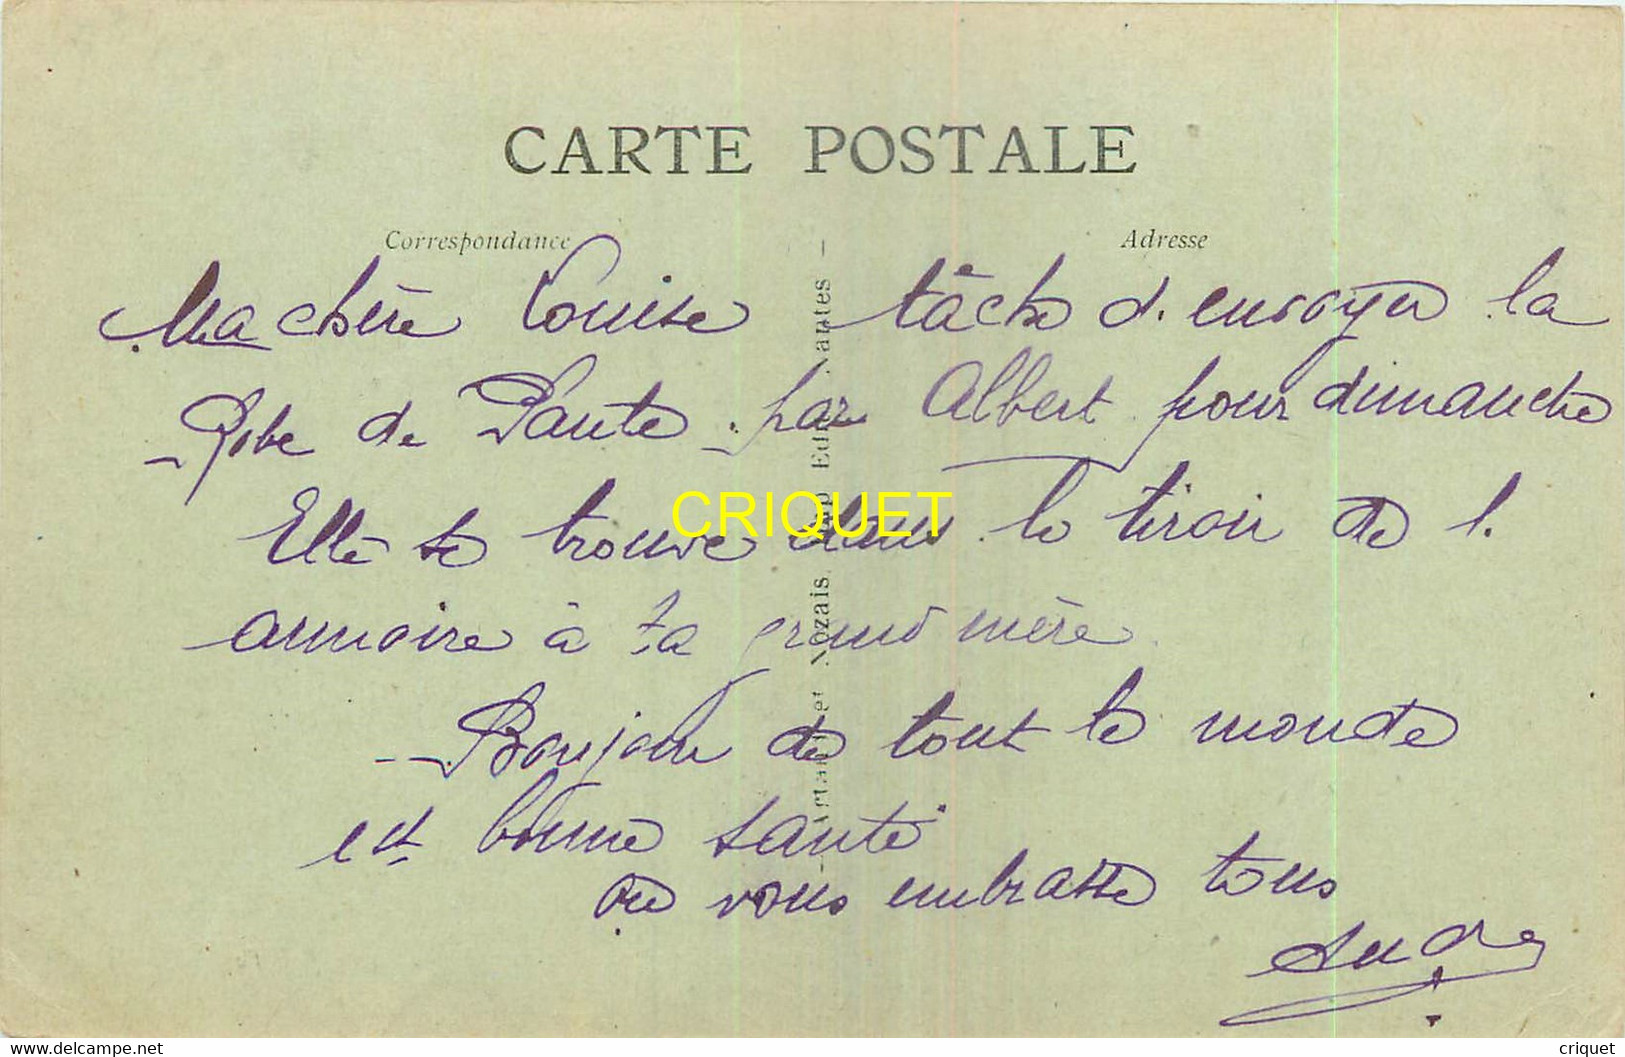 CARTE POSTALE
Correspondance
Adresse
Ma chère Louise tâche d'envoyer la
Robe de Paute par Albert pour dimanche
Elle se trouve dans le tiroir de l.
armoire à ta grand mère
Bonjour de tout le monde
et bonne santé
on vous embrasse tous
Artaud et Nozais Imp. Edit. Nantes
CRIQUET
www.delcampe.net
criquet